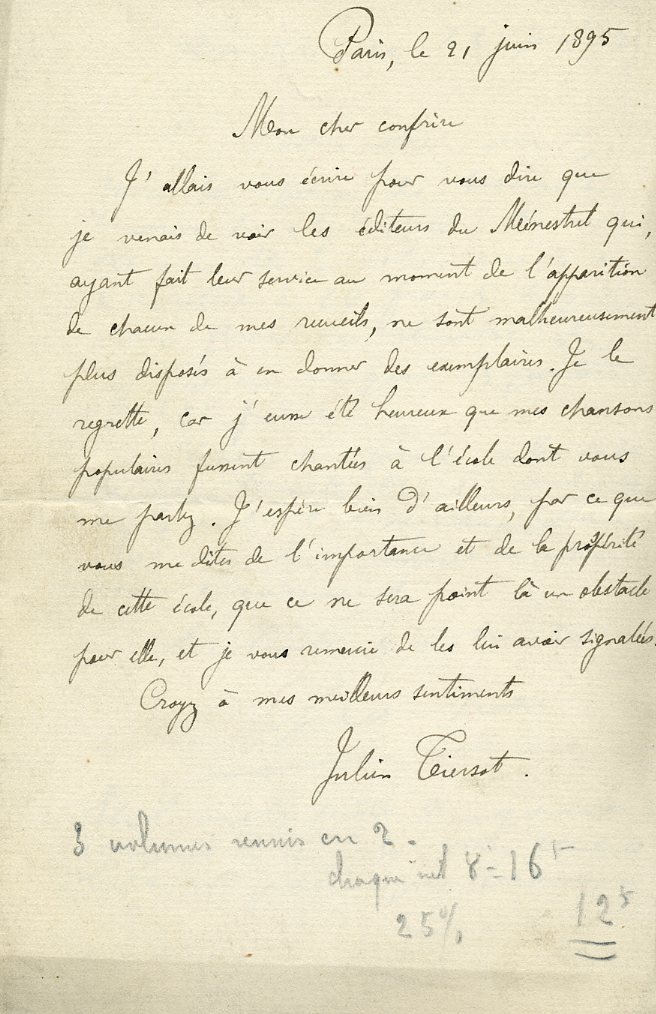 Paris, le 21 juin 1895
Mon cher confrère
J'allais vous écrire pour vous dire que
je venais de voir les éditeurs du Ménestrel qui,
ayant fait leur service au moment de l'apparition
de chacun de mes recueils, ne sont malheureusement
plus disposés à en donner des exemplaires. Je le
regrette, car j'eusse été heureux que mes chansons
populaires fussent chantées à l'école dont vous
me parlez. J'espère bien d'ailleurs, par ce que
vous me dites de l'importance et de la prospérité
de cette école, que ce ne sera point là un obstacle
pour elle, et je vous remercie de les lui avoir signalées.
Croyez à mes meilleurs sentiments
Julien Tiersot.
3 volumes reunis en 2.
chaque net 8 = 16 f
25 %
12 f